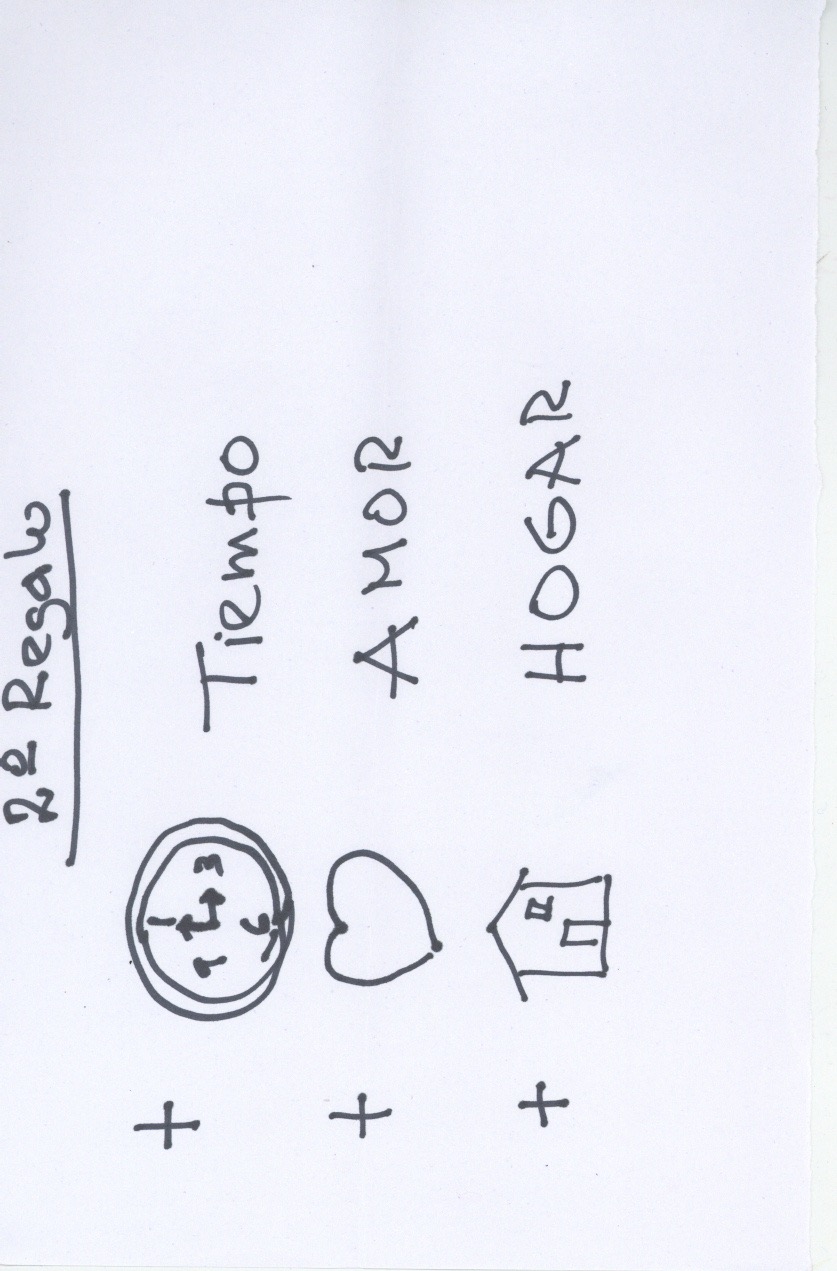 2º Regalo
+ 1 9 3 6 Tiempo
+ AMOR
+ HOGAR